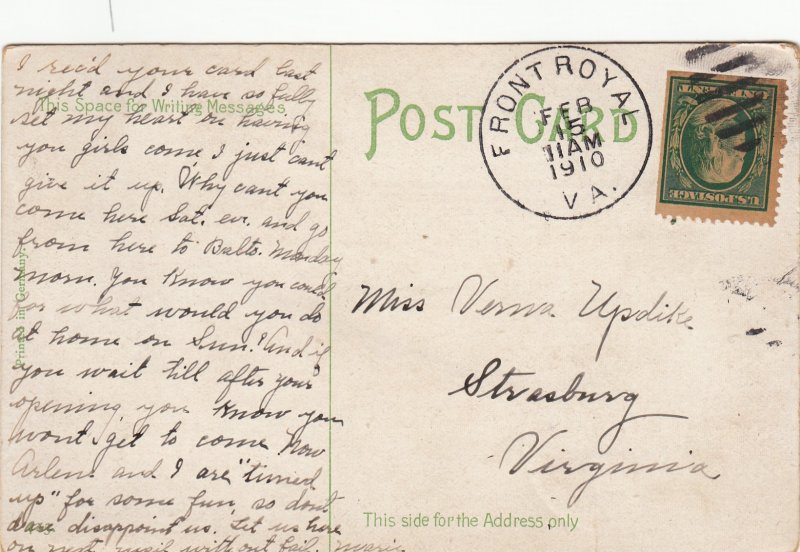 I rec'd your card last
night and I have so fully
This Space for Writing Messages.
set my heart on having
you girls come, I just cant
give it up. Why cant you
come here Sat. ev. and go
from here to Balto. Monday
morn. You know you could
for what would you do
at home on Sun.? And if
you wait till after your
opening, you know you
wont get to come. Now
Arlene and I are "tuned
up" for some fun, so dont
dare disappoint us. Let us here
on next visit without fail. Marie
Printed in Germany.
POST CARD
FRONT ROYAL
FEB
15
11 AM
1910
VA.
U.S. POSTAGE
Miss Verna Updike
Strasburg
Virginia
This side for the Address only